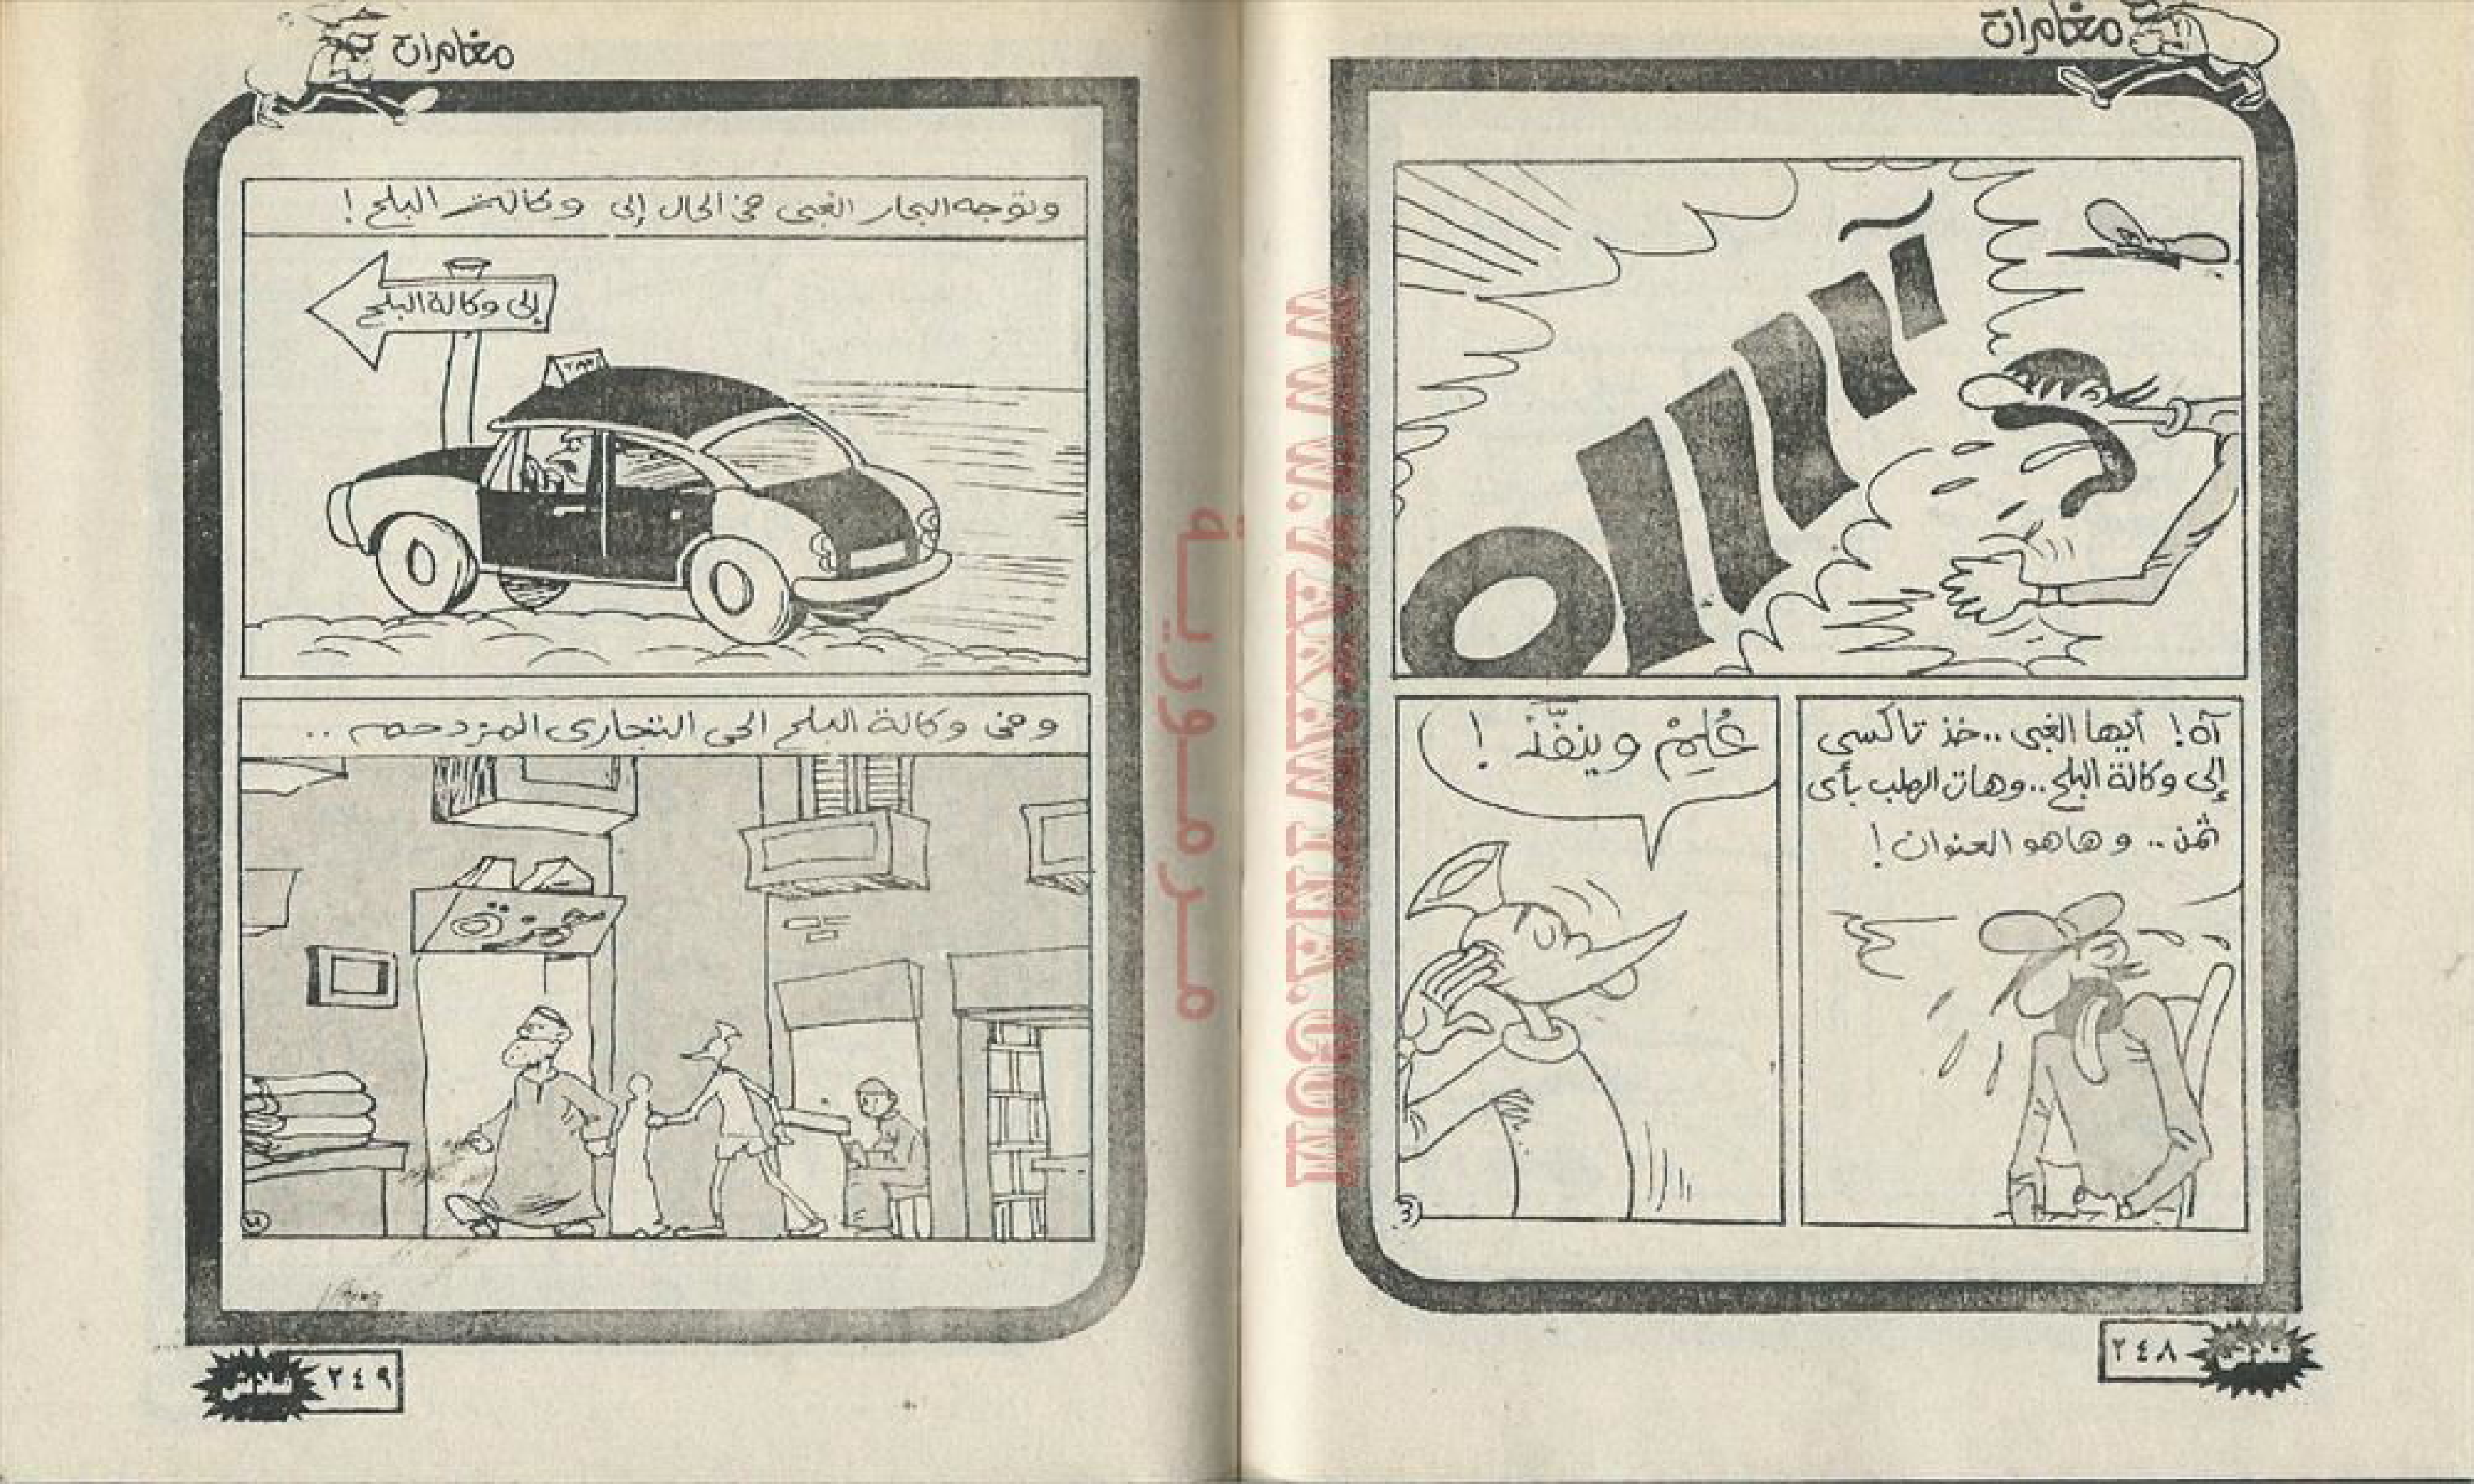 مغامرات
آلاااااه
آه! أيها الغبى .. خذ تاكسى
إلى وكالة البلح .. وهات الصلب بأى
ثمن .. وهاهو العنوان!
عُلِمْ وينفَّذ!
٢٤٨
مغامرات
وتوجه البحار الغبى فى الحال إلى وكالة البلح!
إلى وكالة البلح
TAXI
وفى وكالة البلح الحى التجارى المزدحم ..
٢٤٩
مرمورية